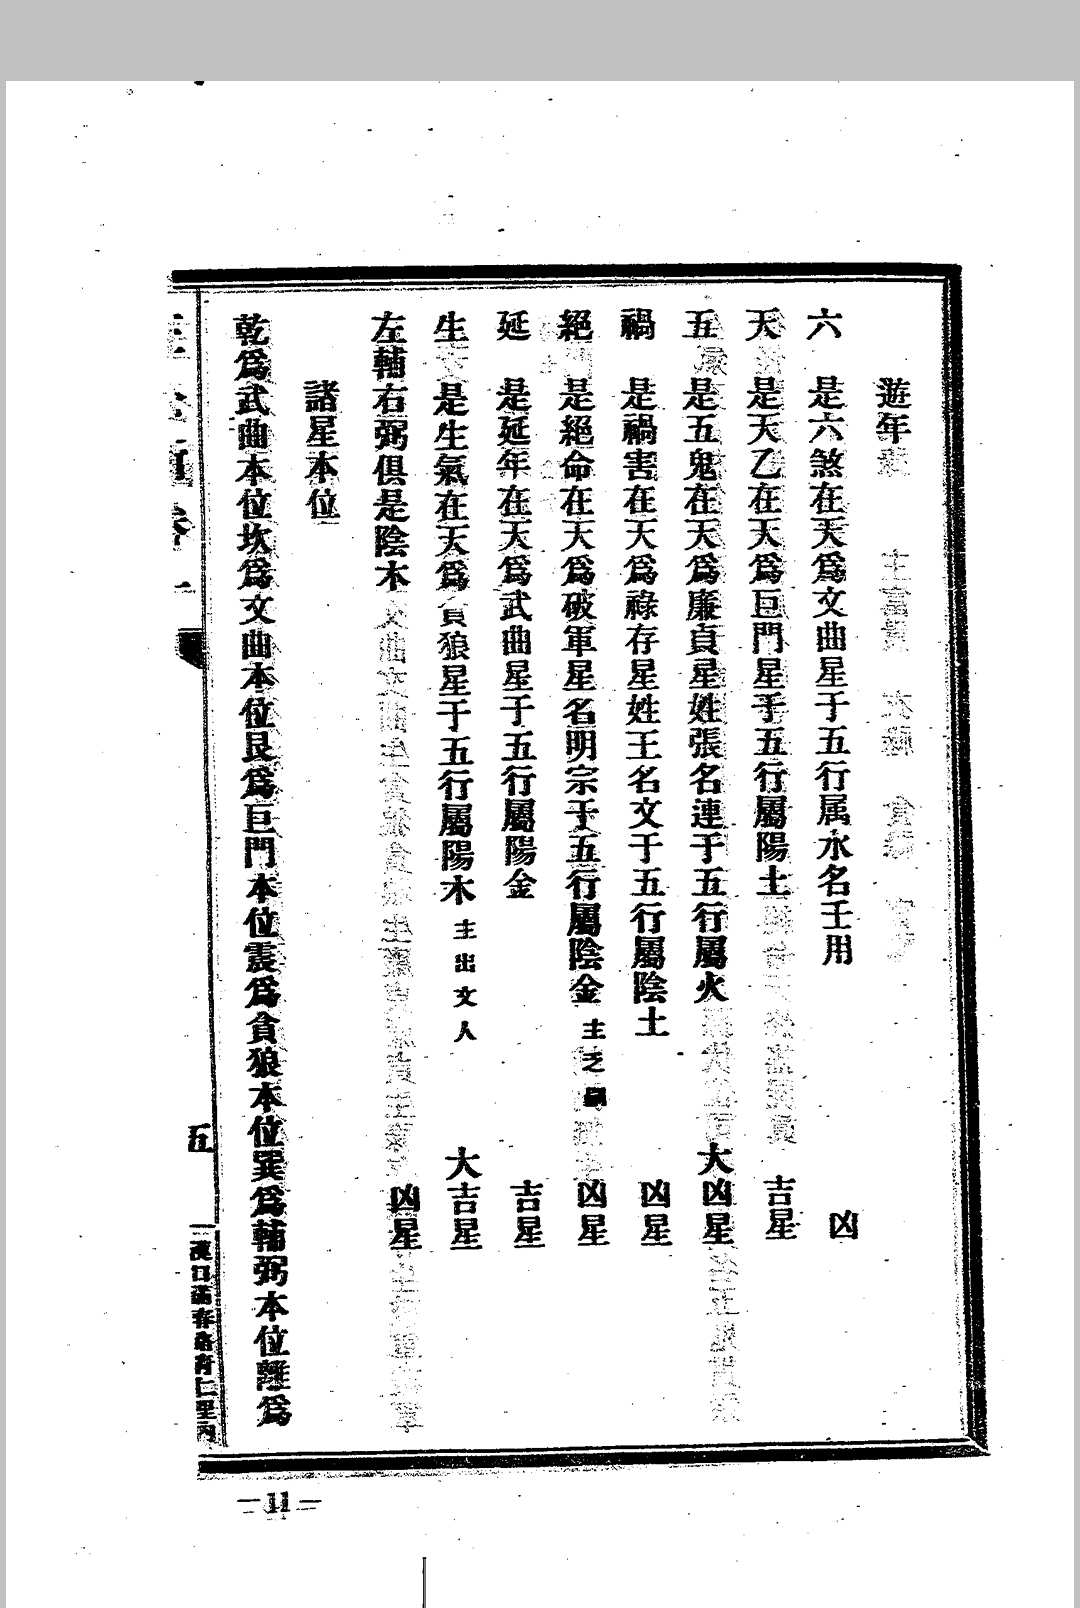 遊年
六　是六煞在天爲文曲星于五行属水名壬用　凶
天　是天乙在天爲巨門星于五行屬陽土　吉星
五　是五鬼在天爲廉貞星姓張名連于五行屬火　大凶星
禍　是禍害在天爲祿存星姓王名文于五行屬陰土　凶星
絕　是絕命在天爲破軍星名明宗于五行屬陰金 主乏嗣　凶星
延　是延年在天爲武曲星于五行屬陽金　吉星
生　是生氣在天爲貪狼星于五行屬陽木 主出文人　大吉星
左輔右弼俱是陰木　凶星
諸星本位
乾爲武曲本位坎爲文曲本位艮爲巨門本位震爲貪狼本位巽爲輔弼本位離爲
五
漢口滿春路青仁里內
—11—